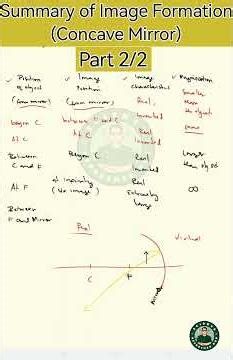 Summary of Image Formation
(Concave Mirror)
Part 2/2
Position of object
(from mirror)
Image Position
(from mirror)
Image characteristics
Magnification
beyond C
between F and C
Real,
Inverted
Smaller
than
the object
At C
At C
Real
Inverted
same
Between
C and F
Beyond C
Real
Inverted
Larger
than object
At F
at infinity
(No image)
Real
Extremely
large
∞
Between
F and Mirror
Real
Virtual
C
F